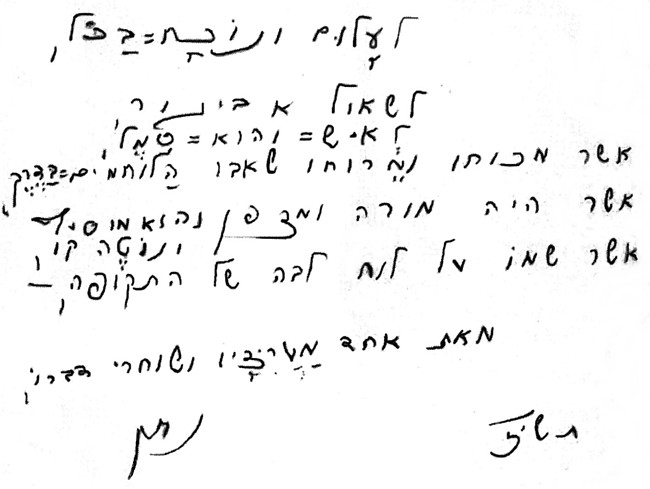 לעָלוּם ונוֹכֵחַ=בַּצל,
לשאול אביגור
לאיש=והוא=סמל,
אשר מכוחו ומֵרוחו שאבו הַלוחמים=בַּדרך,
אשר היה מורה ומצפן והוא מוסיף
ונוטה קו,
אשר שמוֹ על לוח לבה של התקופה, –
מאת אחד מַעריצָיו ושוחרי דברוֹ,
נתן